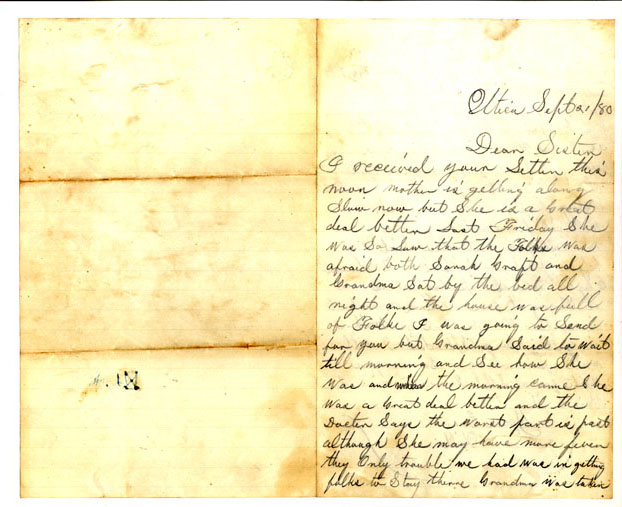 Utica Sept 21/80
Dear Sister
I received your Letter this
noon mother is getting along
Slow now but She is a Great
deal better Last Friday She
was So Low that the Folks was
afraid both Sarah Graft and
Grandma Sat by the bed all
night and the house was full
of Folks I was going to Send
for you but Grandma Said to wait
till morning and See how She
was and when the morning came She
was a Great deal better and the
Docter Says the worst part is past
although She may have more fever
they Only trouble we had was in getting
folks to Stay there Grandma was taken